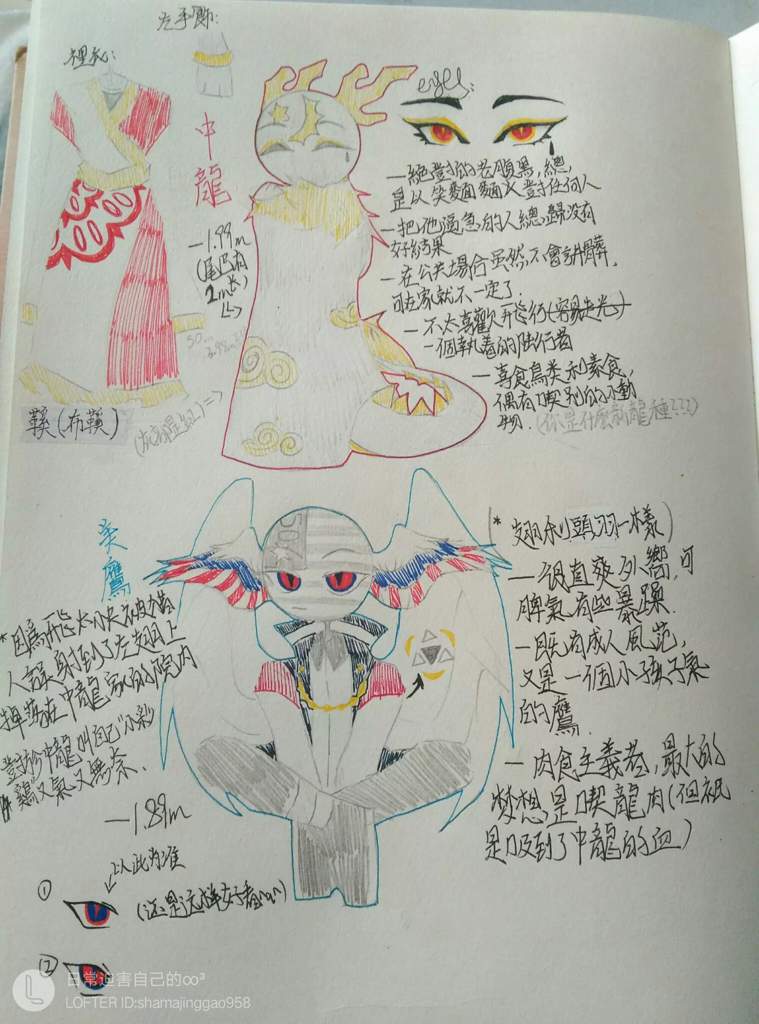 左手飾:
裡衣:
eyes:
中龍
—1.99m
(尾巴有
2m长)
—絕對的老腹黑,總
是以笑面面對任何人
—把他逼急的人總歸沒有
好結果
—在公共場合虽然不會訴髒,
可在家就不一定了.
—不太喜歡飛行(容易走光)
一個執着的陆行者
—喜食鳥类和素食,
偶有喫别的小動
物.(你是什麼新龍種???)
50m
鞋(布鞋)
美鷹
*因為飛太快被猎
人誤射到了左翅上
掉落在中龍家的院内
對於中龍叫自己"小彩
鷄"又氣又無奈.
—1.89m
50
(*翅和頭羽一樣)
—很直爽外嚮,可
脾氣有些暴躁.
—既有成人風范,
又是一個小孩子氣
的鷹.
—肉食主義者,最大的
梦想是喫龍肉(但衹
是吸到了中龍的血)
以此为准
①
(还是这样好看)
②
日常迫害自己的∞³
LOFTER ID:shamajinggao958